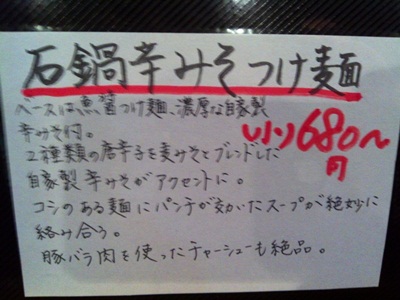 石鍋辛みそつけ麺
ベースは、魚醤つけ麺、濃厚な自家製
辛みそ付。
小、680~
円
2種類の唐辛子を麦みそとブレンドした
自家製辛みそがアクセントに。
コシのある麺にパンチが効いたスープが絶妙に
絡み合う。
豚バラ肉を使ったチャーシューも絶品。